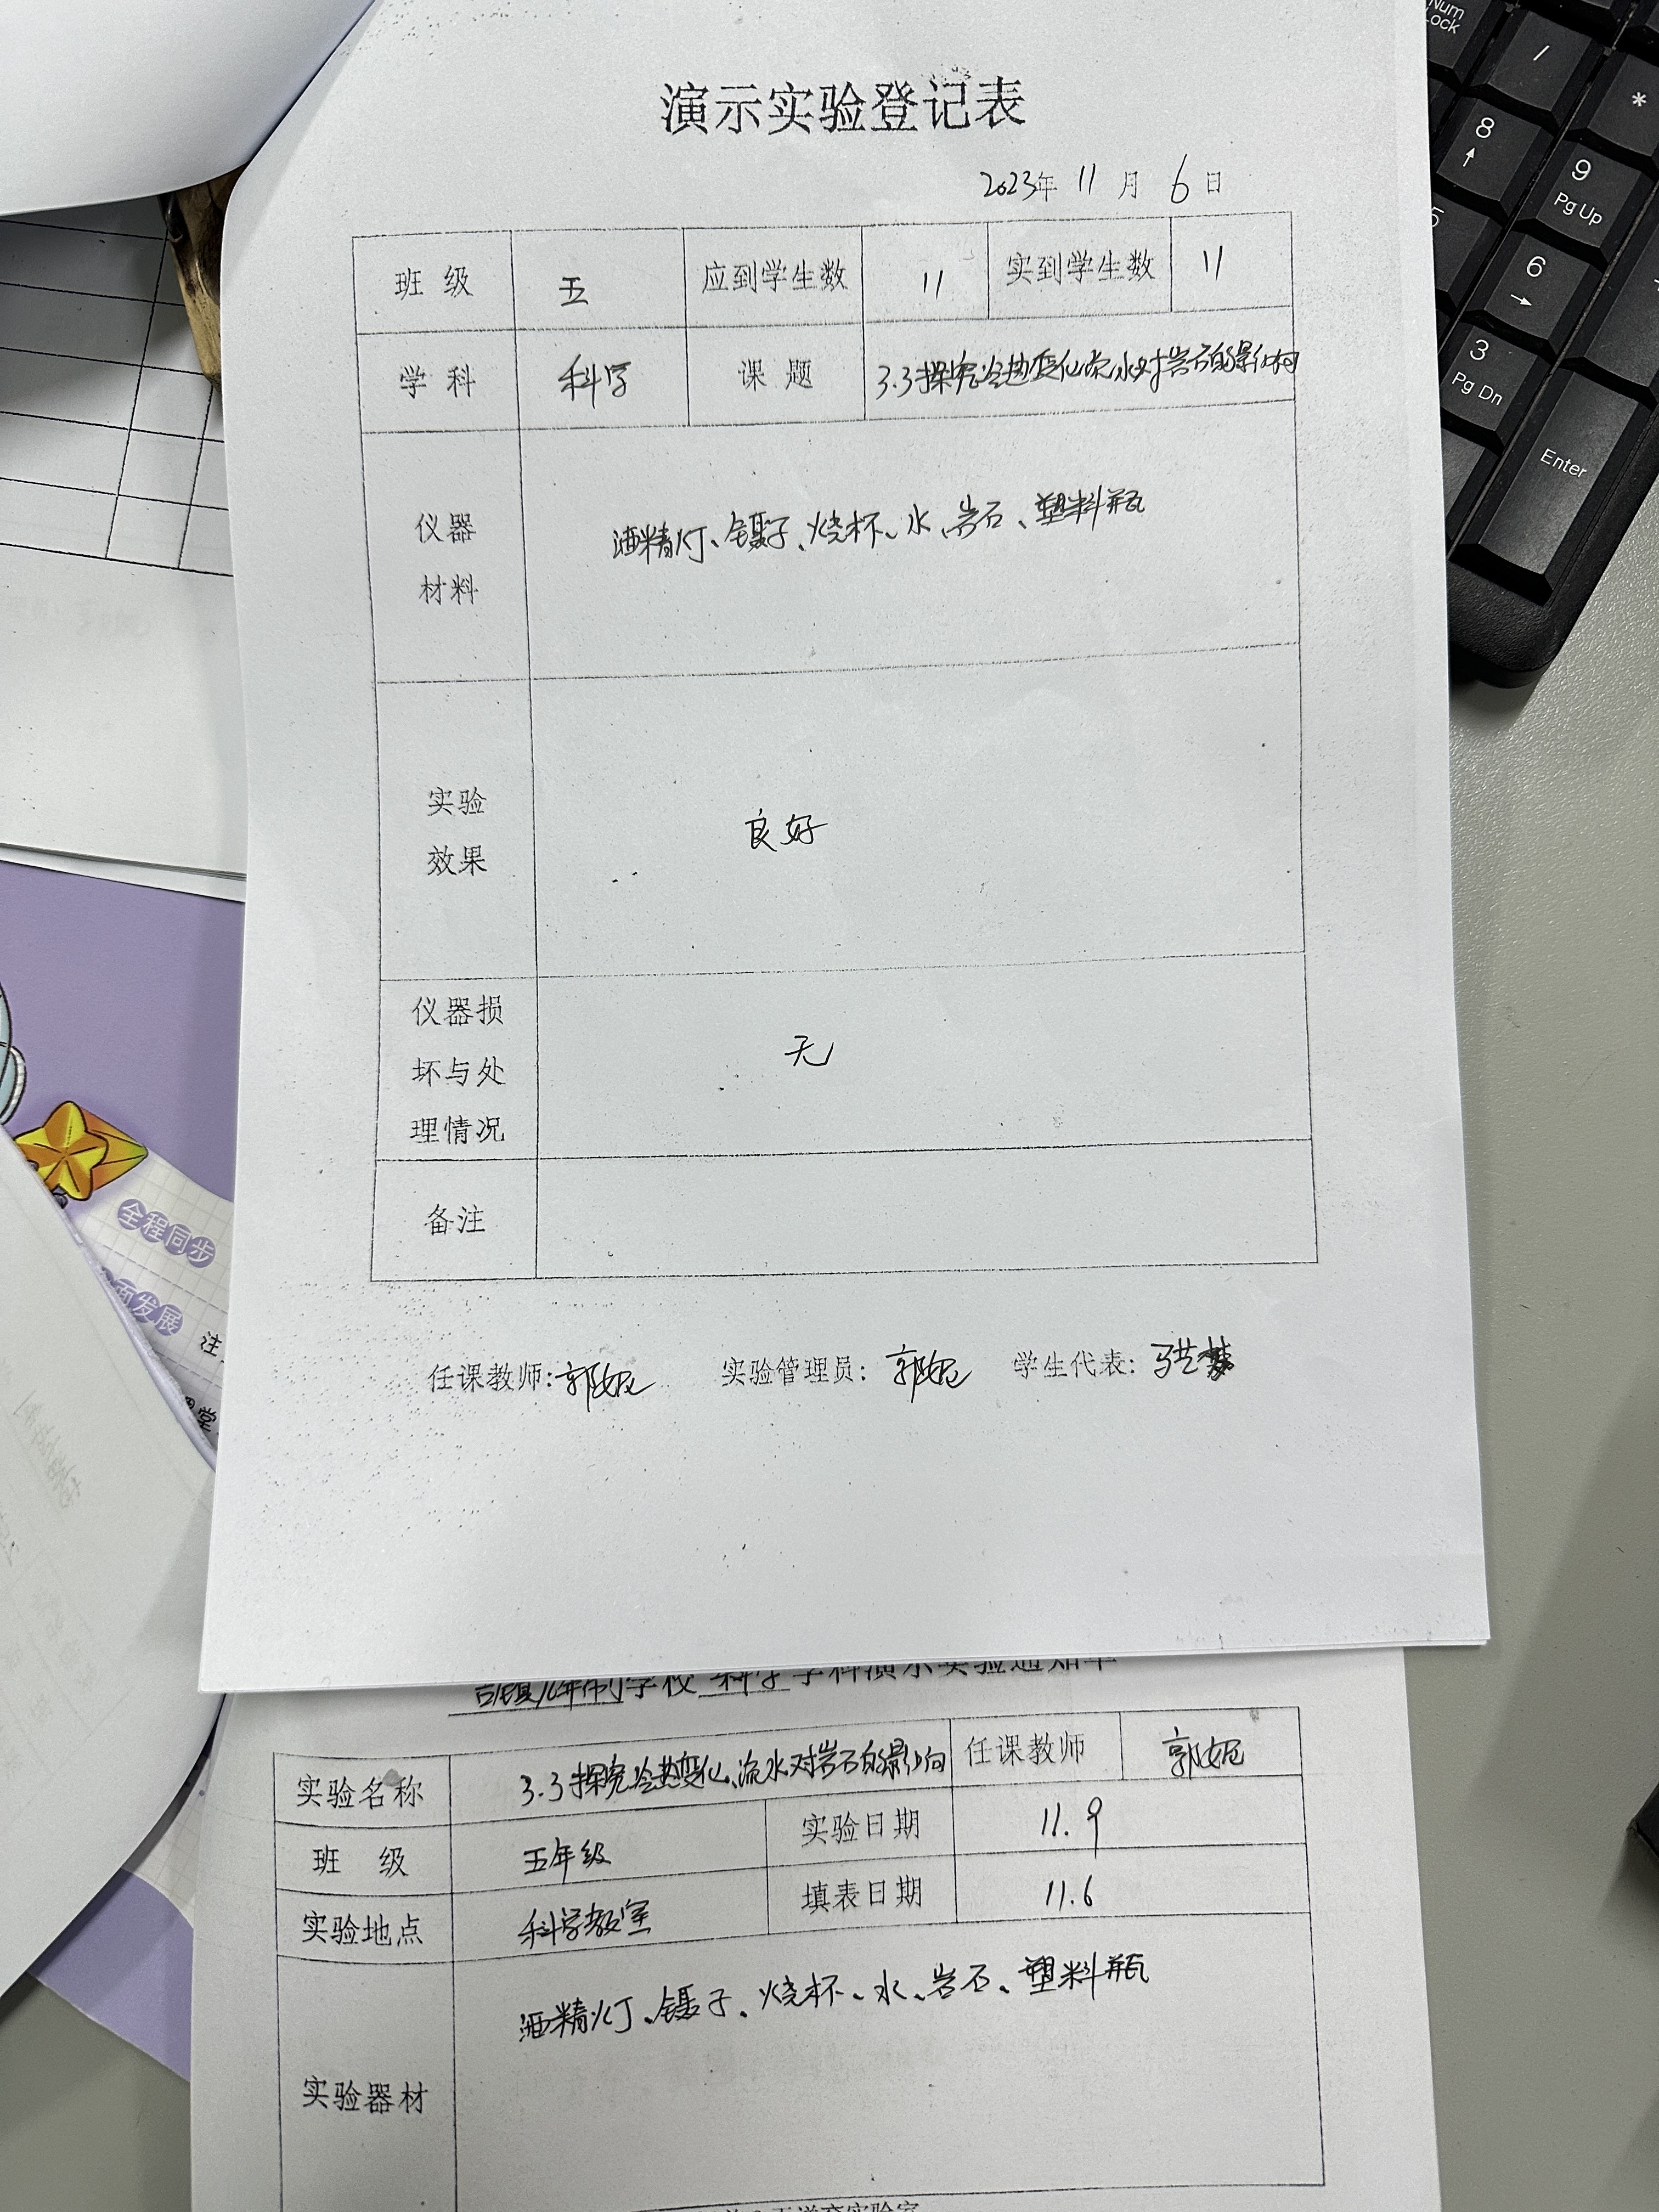 演示实验登记表
2023年 11 月 6 日
班 级 五 应到学生数 11 实到学生数 11
学 科 科学 课 题 3.3探究冷热变化流水对岩石的影响
仪器
材料
酒精灯、镊子、烧杯、水、岩石、塑料瓶
实验
效果
良好
仪器损
坏与处
理情况
无
备注
任课教师: 郭妮 实验管理员: 郭妮 学生代表: 马艺
学校 科学 学科演示实验通知单
实验名称 3.3探究冷热变化、流水对岩石的影响 任课教师 郭妮
班 级 五年级 实验日期 11.9
实验地点 科学教室 填表日期 11.6
实验器材 酒精灯、镊子、烧杯、水、岩石、塑料瓶
全程同步
面发展
注
堂
Num
Lock
/
*
8
9
Pg Up
5
6
3
Pg Dn
Enter